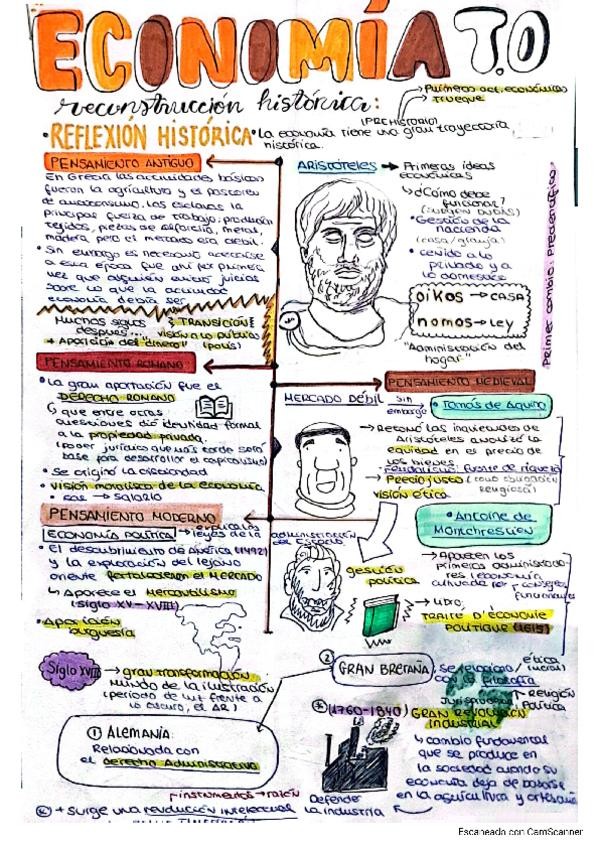 ECONOMÍA T.O
reconstrucción histórica:
→ Primeras act. económicas
→ trueque
(PREHISTORIA)
• REFLEXIÓN HISTÓRICA • La economía tiene una gran trayectoria
histórica.
PENSAMIENTO ANTIGUO
En Grecia las actividades básicas
fueron la agricultura y el pastoreo
de autoconsumo, los esclavos la
principal fuerza de trabajo; producían
tejidos, piezas de alfarería, metal,
madera pero el mercado era débil.
• Sin embargo es necesario
a esta época fue ahí por primera
vez que alguien emitió juicios
sobre lo que la actividad
economía debía ser
ARISTÓTELES → Primeras ideas
económicas
↳ ¿Cómo debe
funcionar?
(surgen dudas)
• Gestión de la
hacienda
(casa/granja)
• ceñido a lo
privado y a
lo doméstico
oikos → CASA
nomos → LEY
"Administración del
hogar"
Primer cambio: Precientífico
Muchos siglos
después...
TRANSICIÓN
visión a lo público
(país)
+ Aparición del "dinero"
PENSAMIENTO ROMANO
• La gran aportación fue el
DERECHO ROMANO
↳ que entre otras
cuestiones dió identidad formal
a la propiedad privada.
(poder jurídico que más tarde será
base para desarrollar el capitalismo)
• Se originó la
• visión moralista de la economía
• sal → salario
PENSAMIENTO MEDIEVAL
MERCADO DÉBIL
sin
embargo
• Tomás de Aquino
→ Retomó las inquietudes de
Aristóteles analizó la
equidad en el precio de
los bienes
• Feudalismo: fuente de riqueza
→ Precio justo (como obligación
religiosa)
visión ética
PENSAMIENTO MODERNO
ECONOMÍA POLÍTICA → explican las
leyes de la
administración
del Estado
• El descubrimiento de América (1492)
y la exploración del lejano
oriente fortalecieron el MERCADO
↳ Aparece el Mercantilismo
(siglo XV – XVIII)
• Aparición
burguesía
• Antoine de
Montchrestien
gestión
política
→ Aparecen los
primeros administrado-
res (economía
cultivada por consejos,
funcionarios
→ LIBRO:
TRAITE D'ÉCONOMIE
POLITIQUE (1615)
Siglo XVIII → gran transformación
mundo de la ilustración
(periodo de luz frente a
lo oscuro, el AR)
① ALEMANIA:
Relacionada con
el derecho Administrativo
② GRAN BRETAÑA, se relaciona
con la filosofía
ética
(moral)
Jurisprudencia
Religión
Política
(1760-1840) GRAN REVOLUCIÓN
INDUSTRIAL
↳ cambio fundamental
que se produce en
la sociedad cuando su
economía deja de basarse
en la agricultura y artesanía
Defender
la industria
↗ instrumentos → razón
+ surge una revolución intelectual
Escaneado con CamScanner